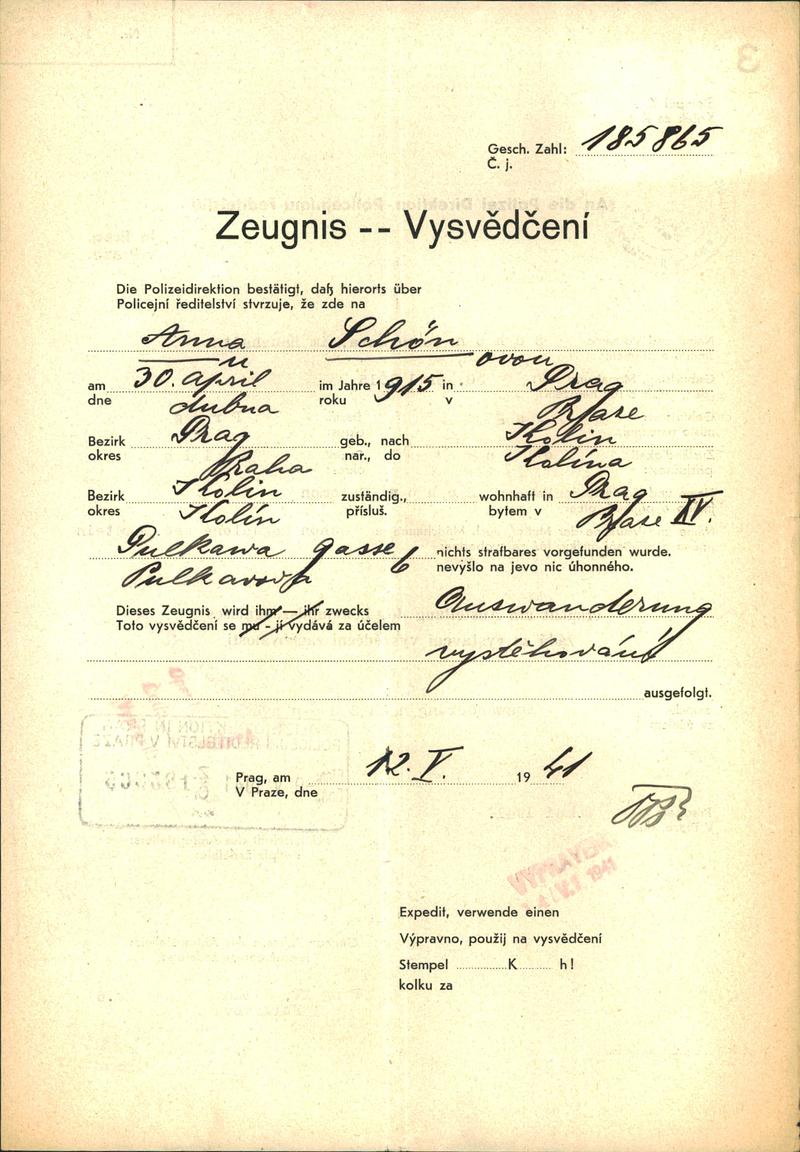 Gesch. Zahl: 185865
Č. j.
Zeugnis -- Vysvědčení
Die Polizeidirektion bestätigt, daß hierorts über
Policejní ředitelství stvrzuje, že zde na
Anna Schön
u ovou
am 30. April im Jahre 1915 in Prag
dne dubna roku v Praze
Bezirk Prag geb., nach Kolin
okres Praha nar., do Kolína
Bezirk Kolin zuständig., wohnhaft in Prag
okres Kolín přísluš. bytem v Praze XV.
Pulkawa gasse 6 nichts strafbares vorgefunden wurde.
Pulkavova nevýšlo na jevo nic úhonného.
Dieses Zeugnis wird ihm — ihr zwecks Auswanderung
Toto vysvědčení se mu - jí vydává za účelem
vystěhování
ausgefolgt.
Prag, am 12. V. 19 41
V Praze, dne
VYPRAVENO
1941
Expedit, verwende einen
Výpravno, použij na vysvědčení
Stempel K h!
kolku za